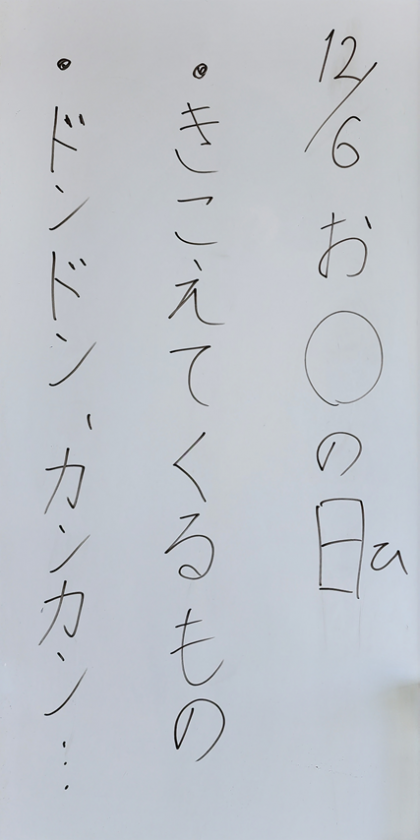 12/6 お○の日ひ
・きこえてくるもの
・ドンドン、カンカン…